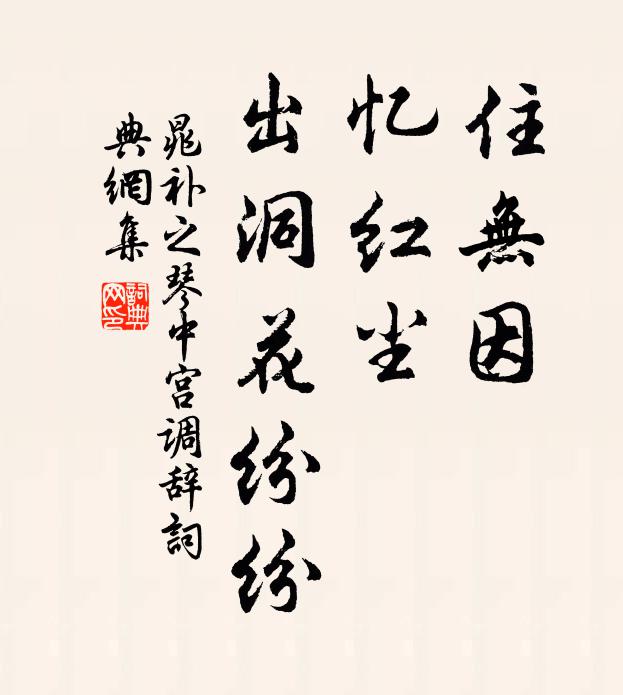 住無因
忆红尘
出洞花纷纷
晁补之琴中宫调辞詞
典網集
詞典
网印